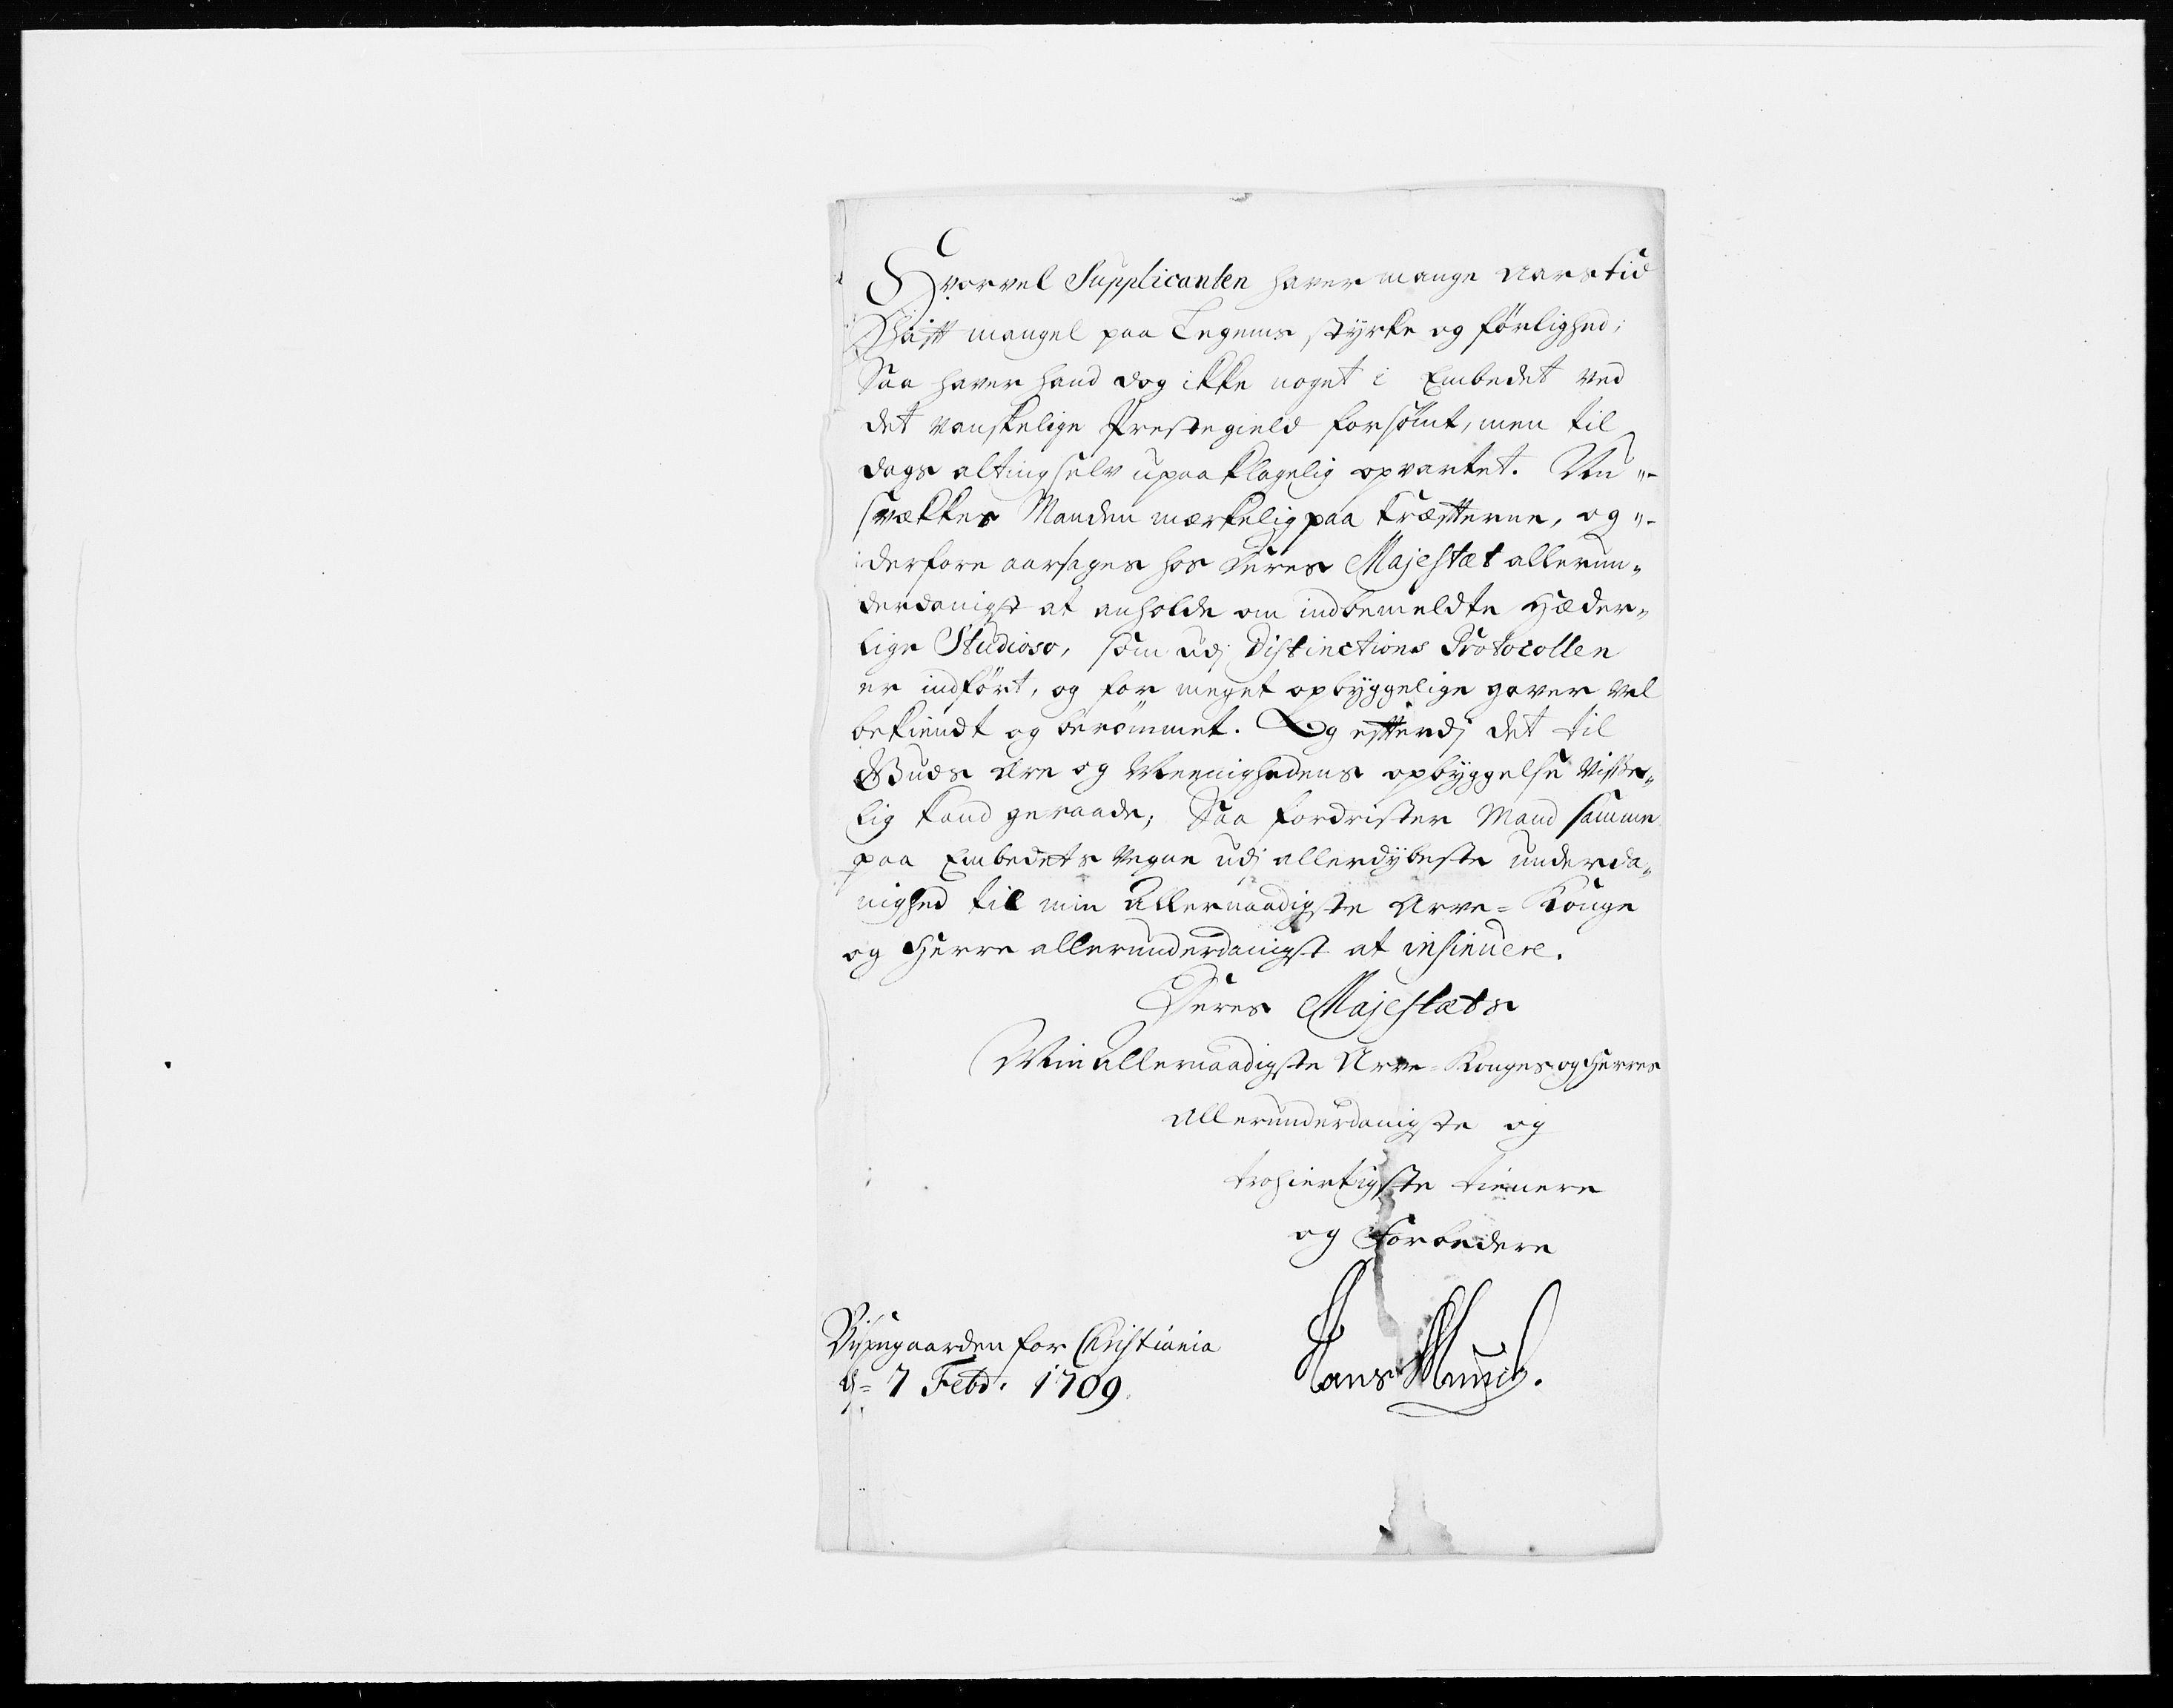 Hvorvel Supplicanten haver mange Aars tid
Hafft mangel paa Legems styrke og førlighed;
Saa haver hand dog ikke noget i Embedet ved
det vanskelige Prestegield forsømt, men til
dags alting selv upaaklagelig opvartet. Nu
svækkes Manden mærkelig paa kræffterne, og
derfore aarsages hos Deres Majestæt allerun„
derdanigst at anholde om indbemeldte Hæder„
lige Studioso, som udj Distinctions Protocollen
er indført, og for meget opbyggelige gaver vel
bekiendt og berømmet. Og effterdj det til
Guds Ære og Meenighedens opbyggelse visse„
lig kand geraade; Saa fordrister Mand samme
paa Embedets vegne udj allerdybeste underda„
nighed til min Allernaadigste Arve=Konge
og Herre allerunderdanigst at insinuere.
Deres Majestæts
Min Allernaadigste Arve=Konges og Herres
Allerunderdanigste og
trohiertigste tienere
og Forbedere
Bispegaarden for Christiania
d= 7 Febr. 1709.
Hans Munch.